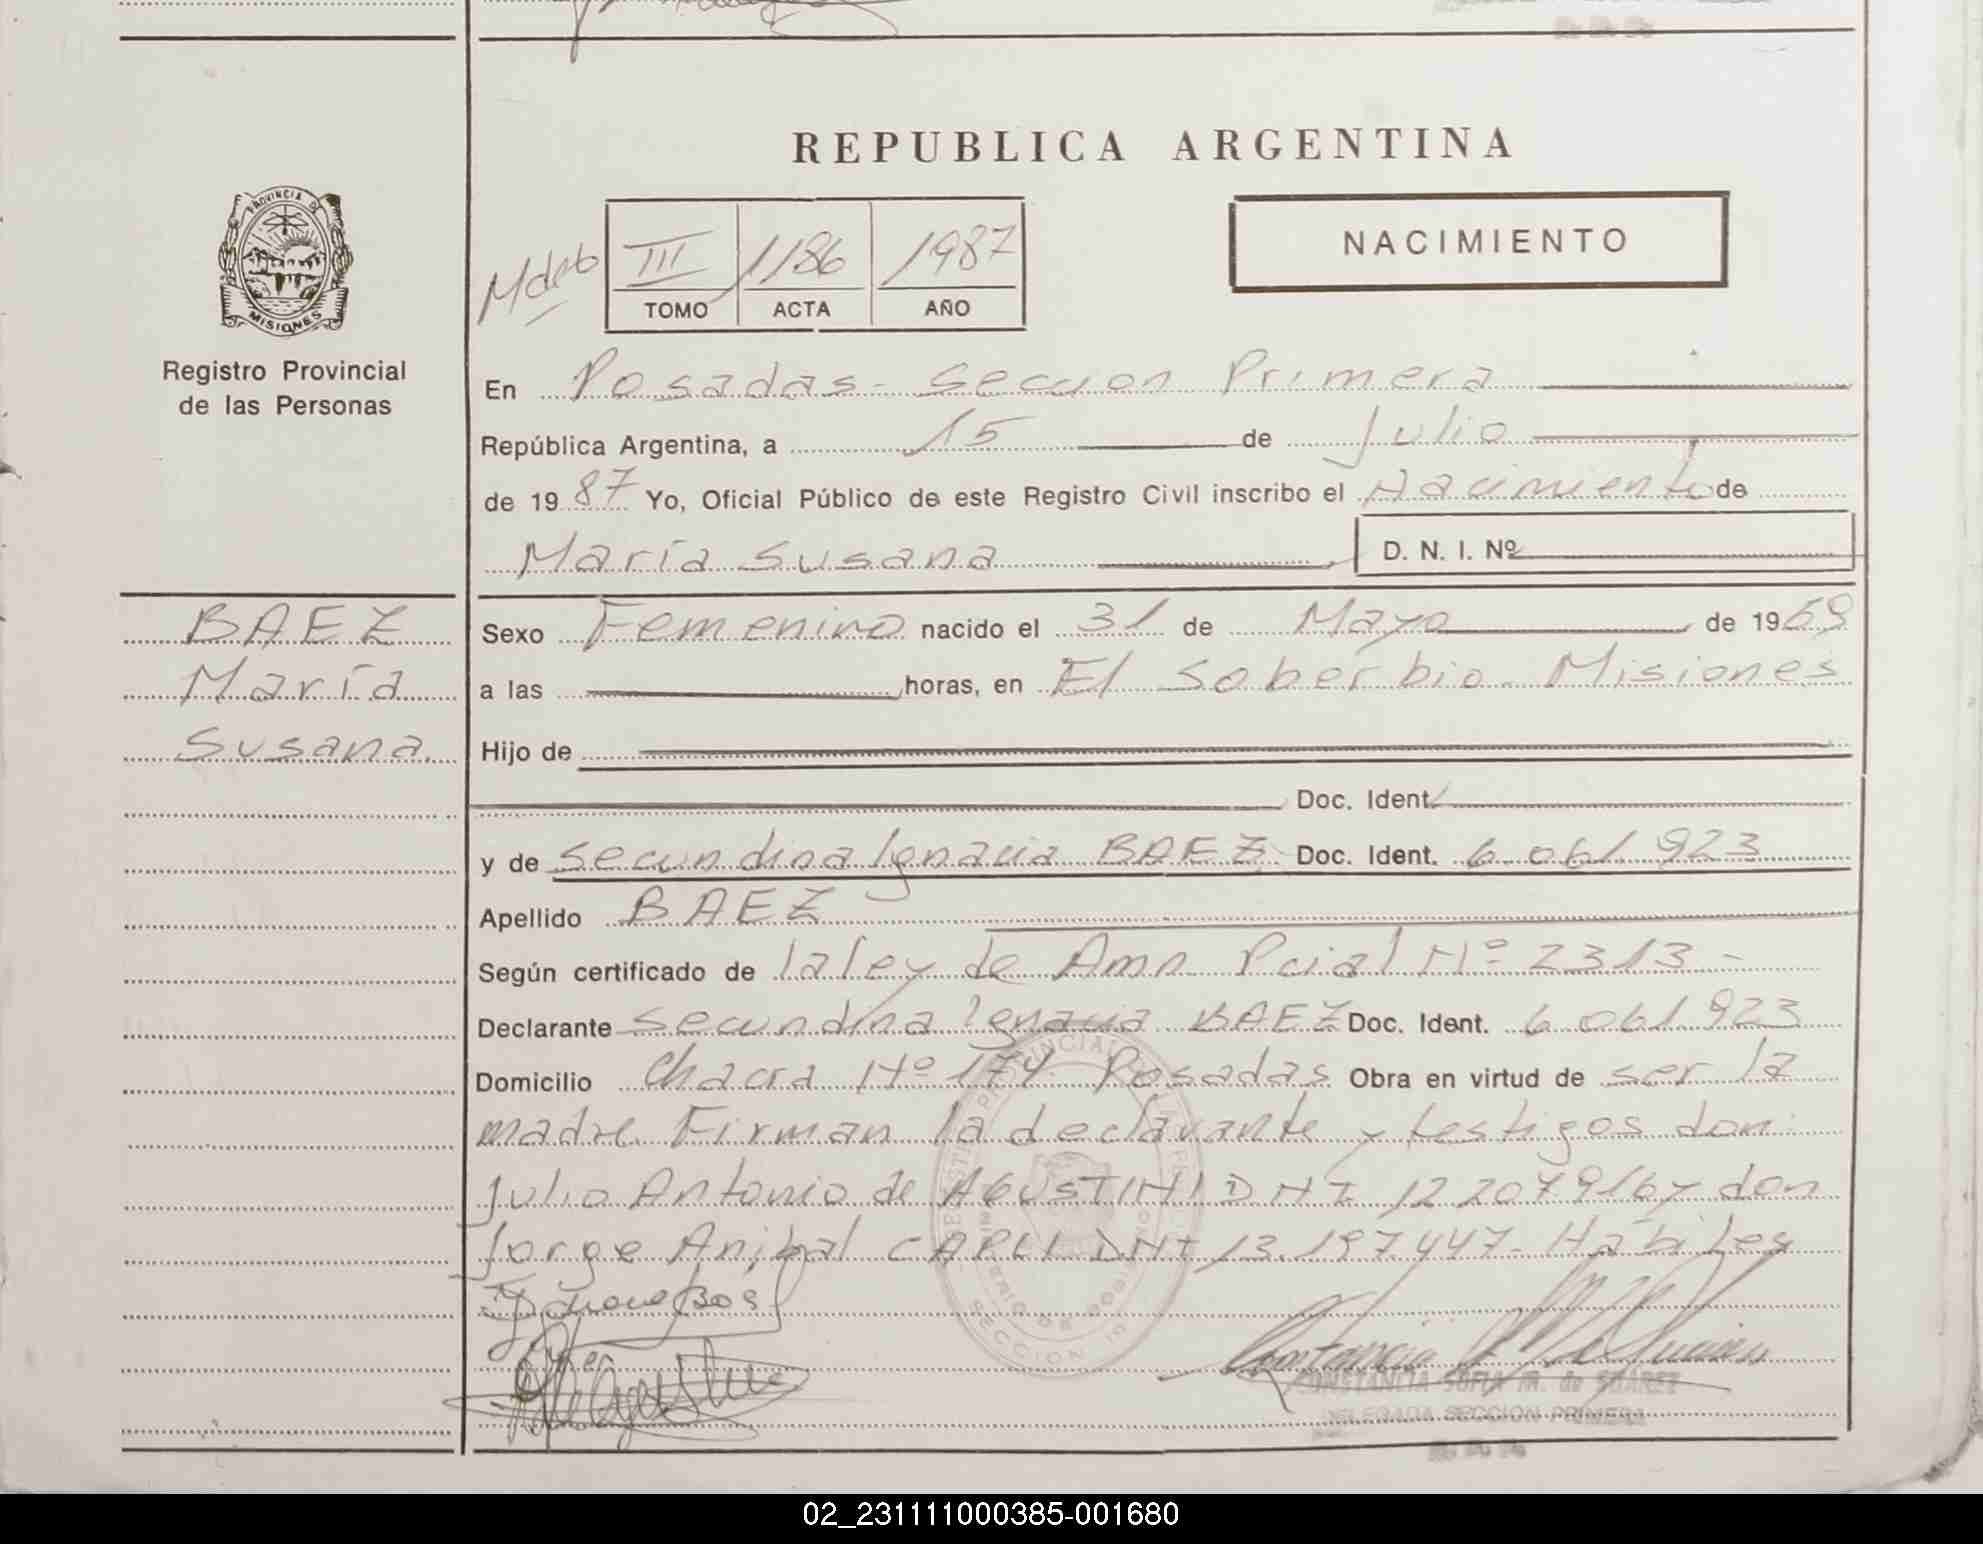 REPUBLICA ARGENTINA
PROVINCIA DE
MISIONES
Registro Provincial
de las Personas
III 1186 1987
TOMO ACTA AÑO
NACIMIENTO
En Posadas - Seccion Primera
República Argentina, a 15 de Julio
de 1987 Yo, Oficial Público de este Registro Civil inscribo el Nacimiento de
María Susana D. N. I. Nº
BAEZ
María
Susana
Sexo Femenino nacido el 31 de Mayo de 1969
a las horas, en El Soberbio - Misiones
Hijo de
Doc. Ident.
y de Secundina Ignacia BAEZ Doc. Ident. 6.061.923
Apellido BAEZ
Según certificado de la ley de Amn Pcial Nº 2313 -
Declarante Secundina Ignacia BAEZ Doc. Ident. 6.061.923
Domicilio Chacra Nº 174 Posadas Obra en virtud de ser la
madre. Firman la declarante y testigos don
Julio Antonio de AGUSTINI DNI 12207916 y don
Jorge Anibal DNI 13.197.447. Hábiles
CONSTANCIA SOFIA M. de SUAREZ
DELEGADA SECCION PRIMERA
02_231111000385-001680